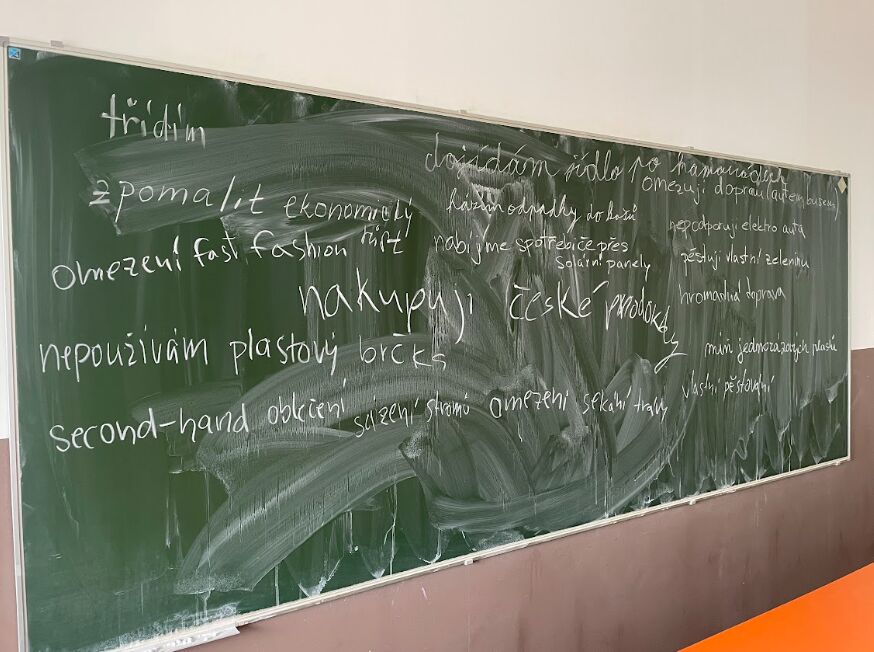 třídím
zpomalit ekonomický růst
omezení fast fashion
nepoužívám plastový brčks
second-hand oblečení
dojídám jídlo po
házím odpadky do košů
nabíjme spotřebiče přes
solární panely
nakupuji české produkty
sázení stromů
omezení sekání trávy
omezuji dopravu (autem busem)
nepodporuji elektro auta
pěstuji vlastní zeleninu
hromadná doprava
míň jednorázových plastů
vlastní pěstování